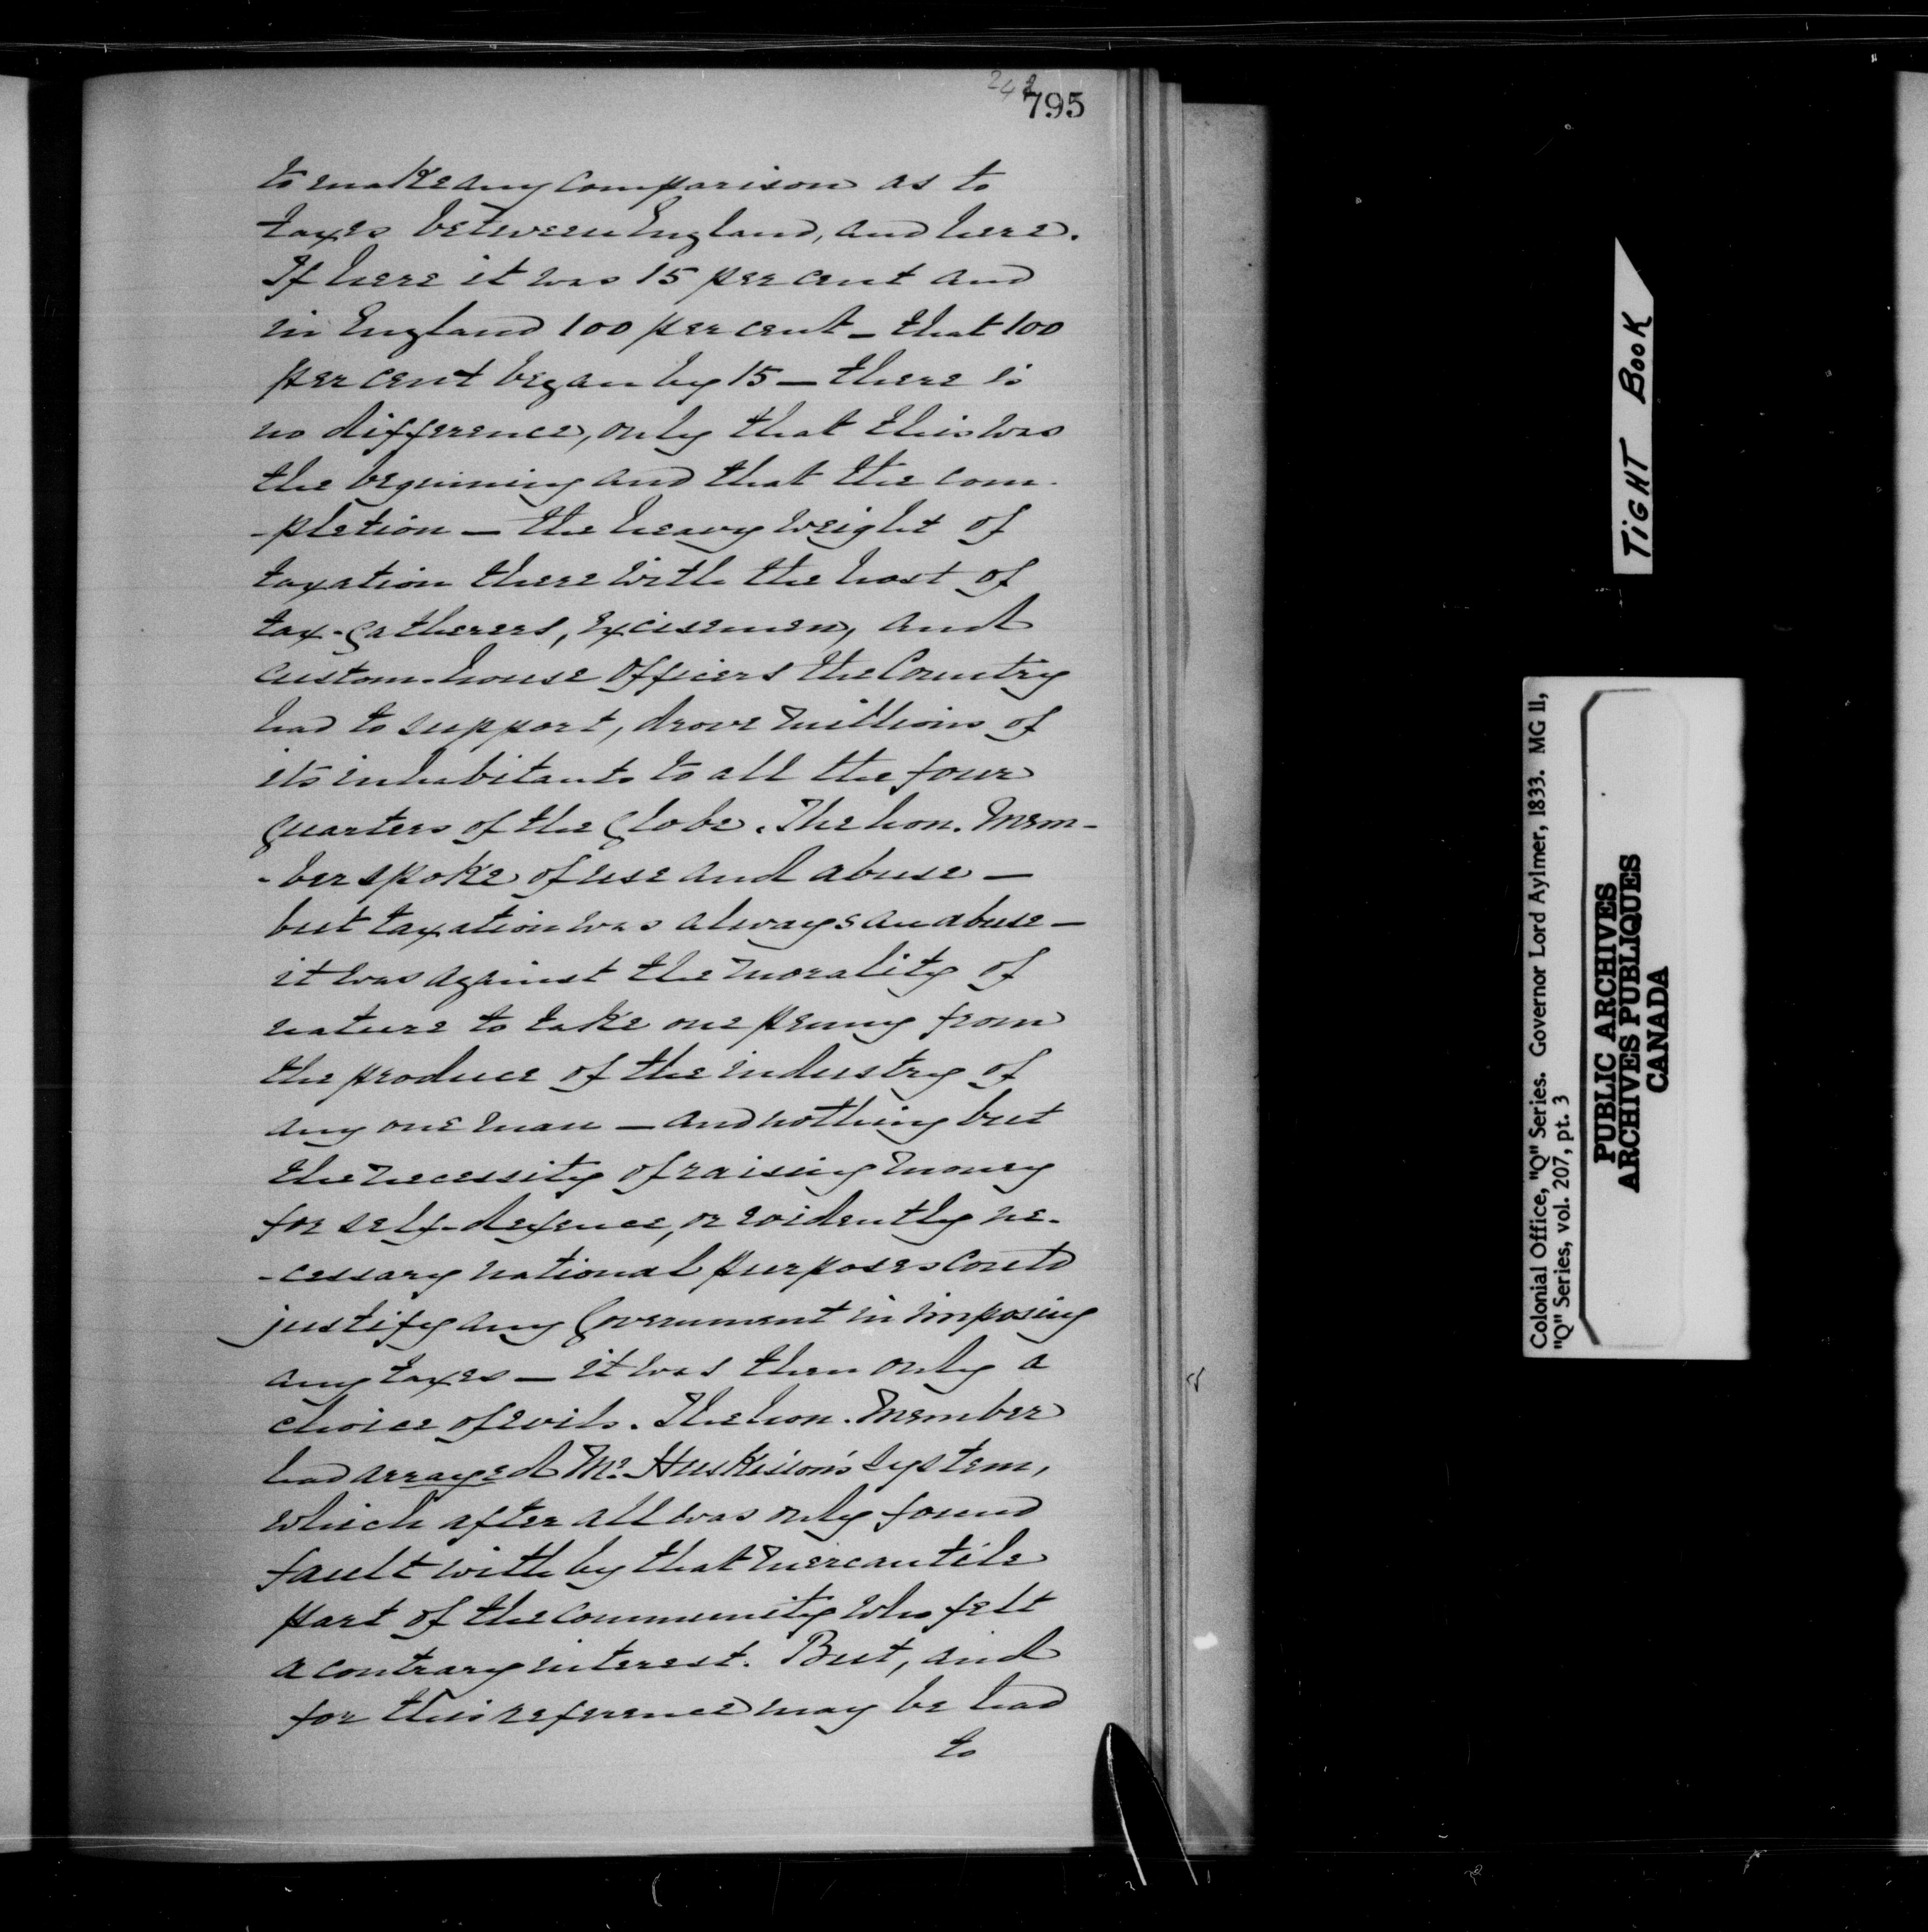 242
795
to make any comparison as to
taxes between England, and here.
If here it was 15 per cent and
in England 100 per cent — that 100
per cent began by 15 — there is
no difference, only that this was
the beginning and that the com-
-pletion — the heavy weight of
taxation there with the host of
tax-gatherers, excisemen, and
custom-house officers the Country
had to support, drove millions of
its inhabitants to all the four
quarters of the Globe. The hon. Mem-
-ber spoke of use and abuse —
but taxation was always an abuse —
it was against the morality of
nature to take one penny from
the produce of the industry of
any one man — and nothing but
the necessity of raising money
for self-defence, or evidently ne-
-cessary national purposes could
justify any Government in imposing
any taxes — it was then only a
choice of evils. The hon. Member
had arrayed Mr. Huskisson's system,
which after all was only found
fault with by that mercantile
part of the community who felt
a contrary interest. But, and
for this reference may be had
to
TIGHT BOOK
Colonial Office, "Q" Series. Governor Lord Aylmer, 1833. MG 11,
"Q" Series, vol. 207, pt. 3
PUBLIC ARCHIVES
ARCHIVES PUBLIQUES
CANADA